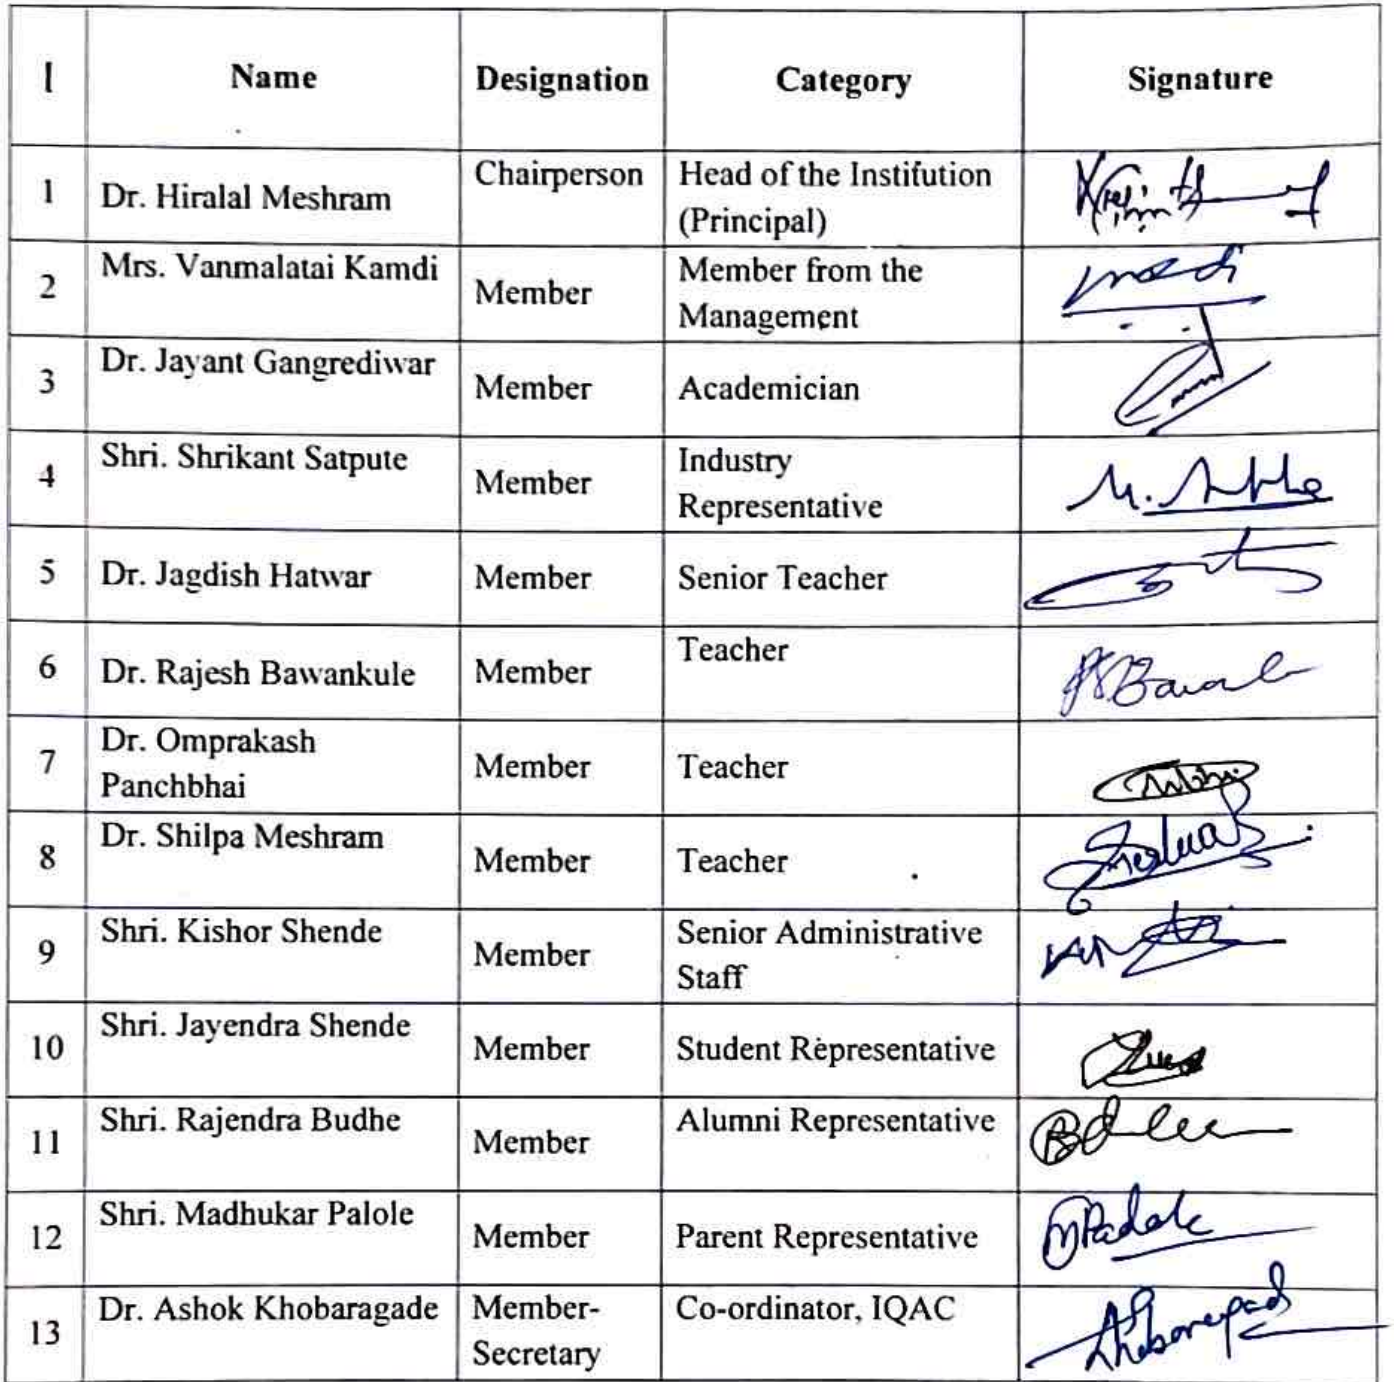 Name Designation Category Signature
1 Dr. Hiralal Meshram Chairperson Head of the Institution
(Principal)
2 Mrs. Vanmalatai Kamdi Member Member from the
Management
3 Dr. Jayant Gangrediwar Member Academician
4 Shri. Shrikant Satpute Member Industry
Representative
5 Dr. Jagdish Hatwar Member Senior Teacher
6 Dr. Rajesh Bawankule Member Teacher
7 Dr. Omprakash
Panchbhai Member Teacher
8 Dr. Shilpa Meshram Member Teacher
9 Shri. Kishor Shende Member Senior Administrative
Staff
10 Shri. Jayendra Shende Member Student Representative
11 Shri. Rajendra Budhe Member Alumni Representative
12 Shri. Madhukar Palole Member Parent Representative
13 Dr. Ashok Khobaragade Member-
Secretary Co-ordinator, IQAC